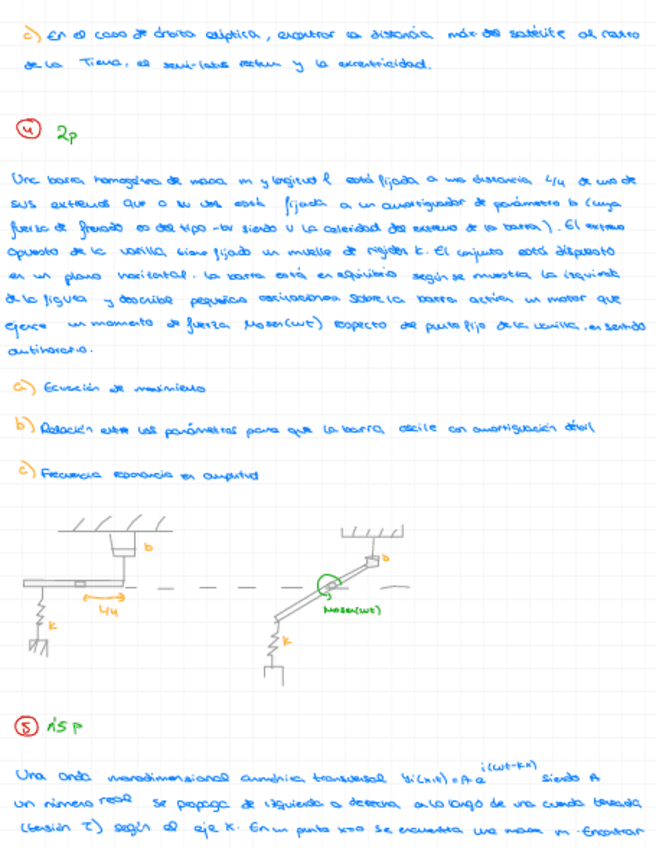 c) En el caso de órbita elíptica, encontrar la distancia máx del satélite al centro
de la Tierra, el semi-latus rectum y la excentricidad.
4 2p
Una barra homogénea de masa m y longitud l está fijada a una distancia L/4 de uno de
sus extremos que a su vez está fijada a un amortiguador de parámetro b (cuya
fuerza de frenado es del tipo -bv siendo v la celeridad del extremo de la barra). El extremo
opuesto de la varilla tiene fijado un muelle de rigidez k. El conjunto está dispuesto
en un plano horizontal. La barra está en equilibrio según se muestra la izquierda
de la figura y describe pequeñas oscilaciones. Sobre la barra actúa un motor que
ejerce un momento de fuerza Mosen(wt) respecto del punto fijo de la varilla, en sentido
antihorario.
a) Ecuación de movimiento
b) Relación entre los parámetros para que la barra oscile con amortiguación débil
c) Frecuencia resonancia en amplitud
b
L/4
k
b
Mosen(wt)
k
5 1'5 p
Una onda monodimensional armónica transversal yi(x,t) = A e^{i(wt-kx)} siendo A
un número real se propaga de izquierda a derecha a lo largo de una cuerda tensada
(tensión T) según el eje x. En un punto x=0 se encuentra una masa m. Encontrar